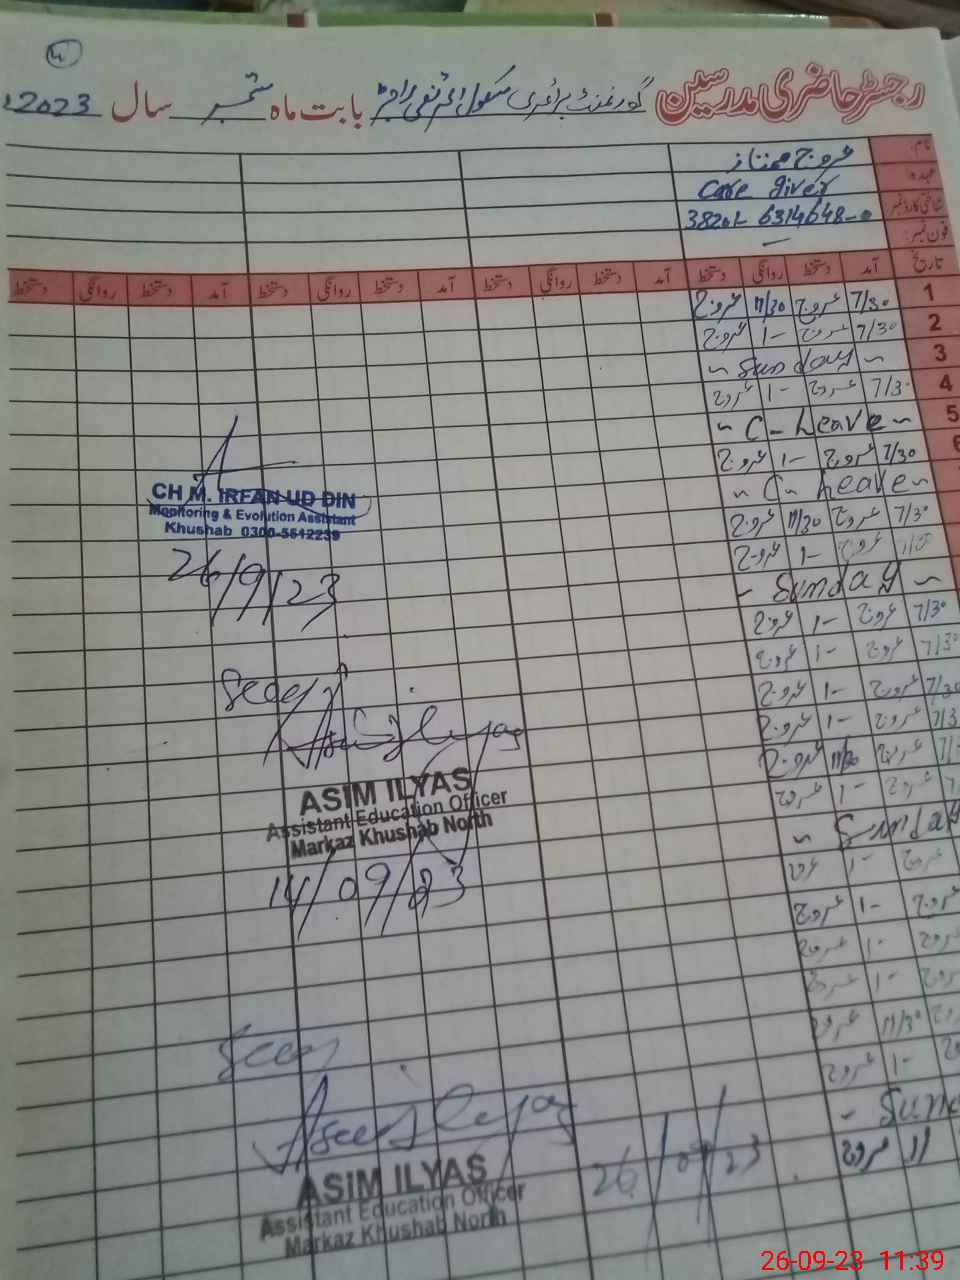 رجسٹر حاضری مدرسین گورنمنٹ پرائمری سکول بابت ماہ ستمبر سال 2023ء
نام
عروج ممتاز
عہدہ
Care giver
شناختی کارڈ نمبر
38201-6314648-0
فون نمبر:
تاریخ آمد دستخط روانگی دستخط آمد دستخط روانگی دستخط آمد دستخط روانگی دستخط
1 7/30 عروج 11/30 عروج
2 7/30 عروج 1- عروج
3 ~ Sunday ~
4 7/30 عروج 1- عروج
5 ~ C-Leave ~
6 7/30 عروج 1- عروج
~ C-Leave ~
7/30 عروج 11/30 عروج
7/30 عروج 1- عروج
- Sunday ~
7/30 عروج 1- عروج
7/30 عروج 1- عروج
7/30 عروج 1- عروج
7/3 عروج 1- عروج
7/ عروج 11/30 عروج
7 عروج 1- عروج
~ Sunday
عروج 1- عروج
عروج 1- عروج
عروج 1- عروج
عروج 1- عروج
عروج 11/30 عروج
1- عروج
- Sund
11 عروج
CH M. IRFAN UD DIN
Monitoring & Evolution Assistant
Khushab 0300-5612239
26/9/23
Seen
ASIM ILYAS
Assistant Education Officer
Markaz Khushab North
14/09/23
Seen
ASIM ILYAS
Assistant Education Officer
Markaz Khushab North
26/09/23
26-09-23 11:39